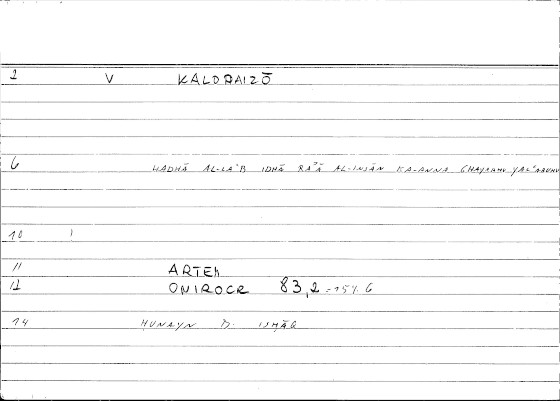 2 V KALDRAIZŌ
6 HADHĀ AL-LAʿB IDHĀ RAʾĀ AL-INSĀN KA-ANNA GHAYRAHU
10
11 ARTEM
12 ONIROCR 83,2 = 154.6
14 ḤUNAYN B. ISḤĀQ